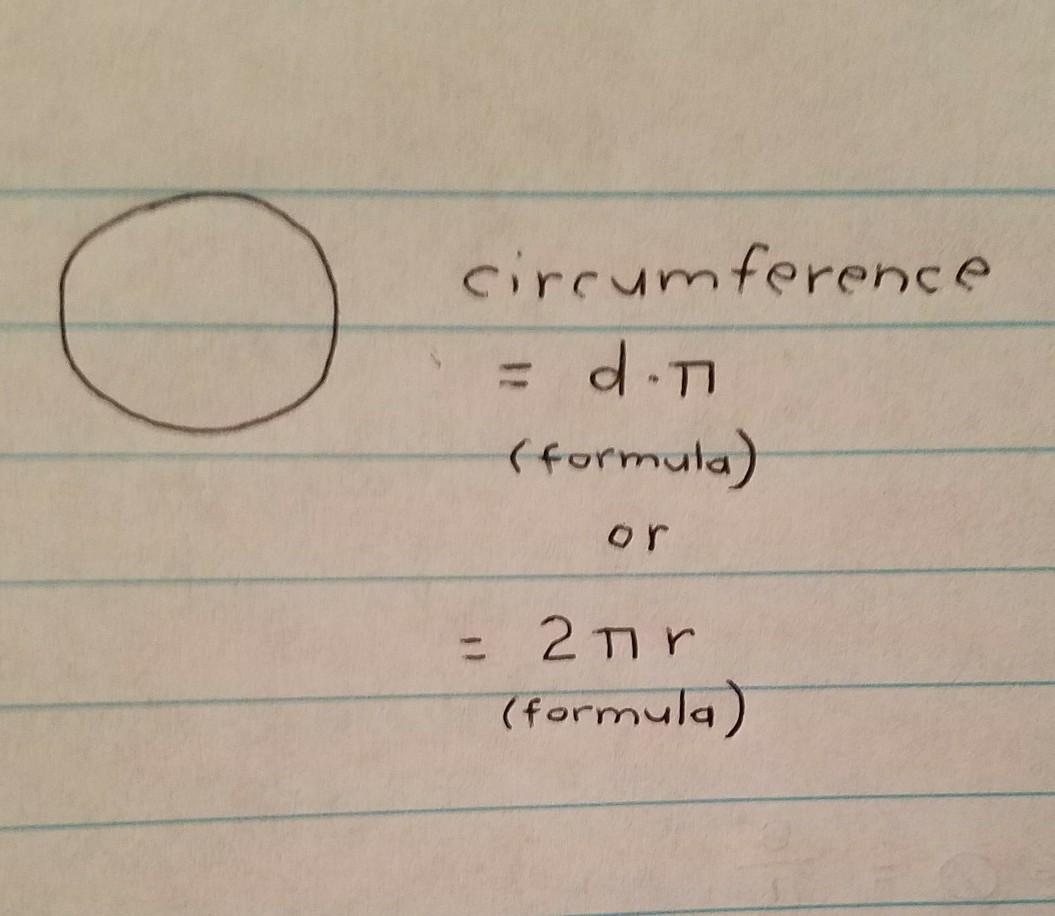 circumference
= d · π
(formula)
or
= 2πr
(formula)